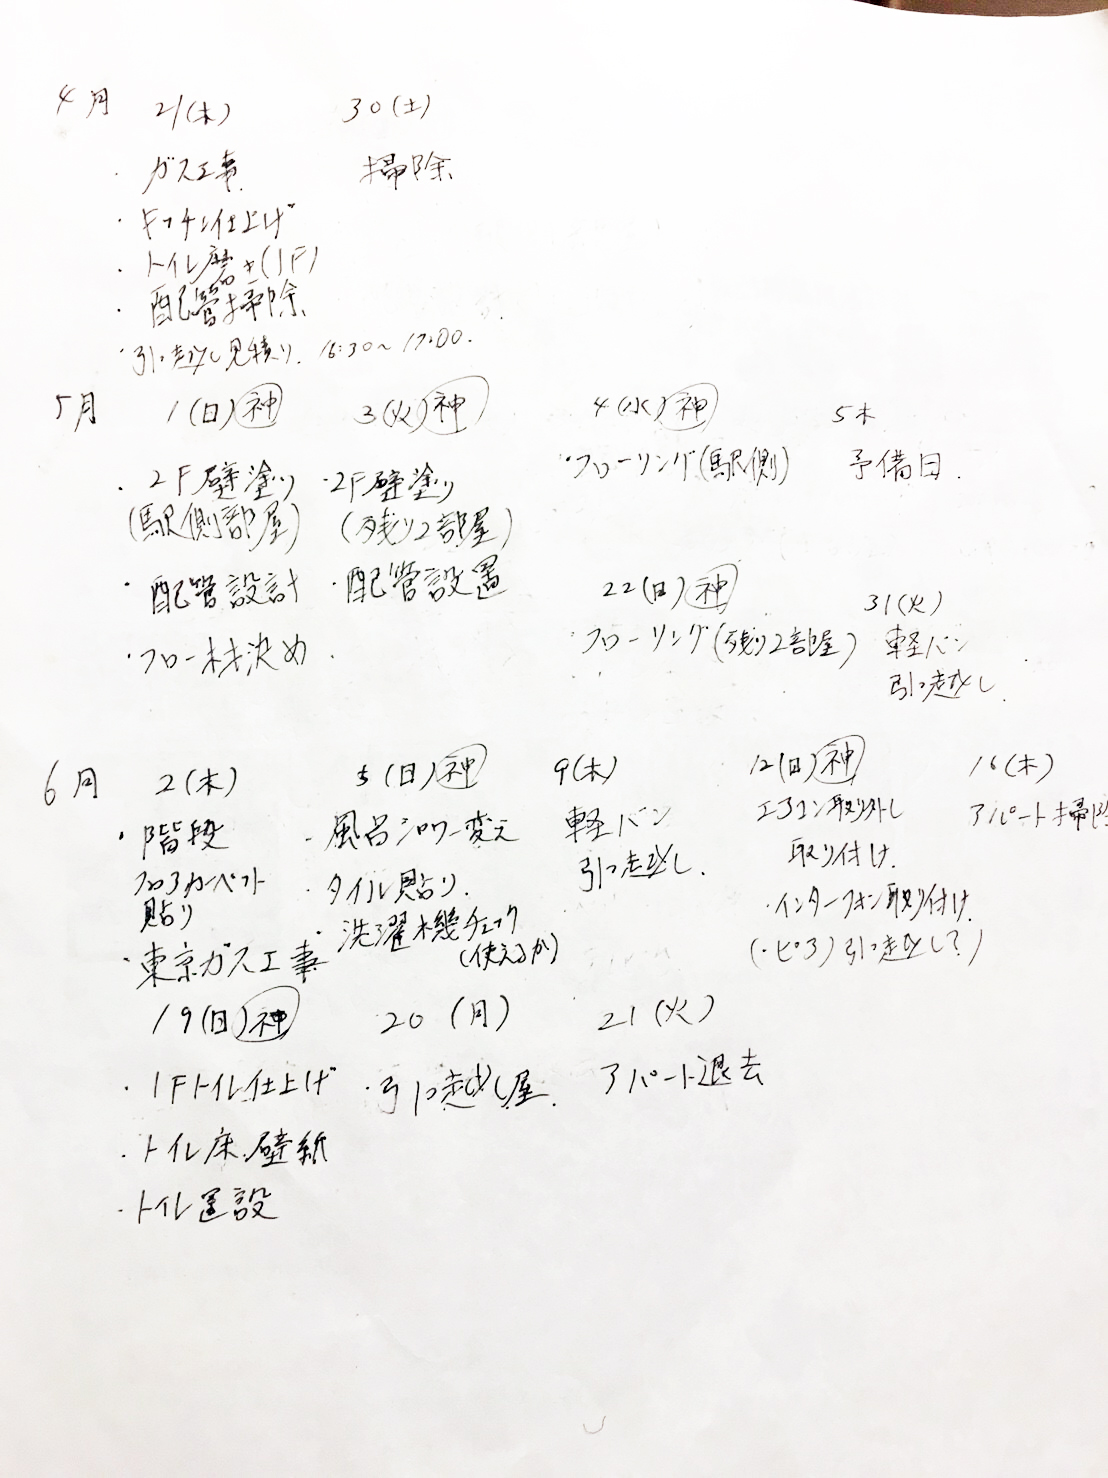 4月 21(木) 30(土)
・ガス工事 掃除
・キッチン仕上げ
・トイレ磨き(1F)
・配管掃除
・引っ越し見積り. 16:30〜17:00.
5月 1(日)神 3(火)神 4(水)神 5木
・2F壁塗り ・2F壁塗り ・フローリング(駅側) 予備日
(駅側部屋) (残り2部屋)
・配管設計 ・配管設置 22(日)神 31(火)
・フロー材決め フローリング(残り2部屋) 軽バン
引っ越し
6月 2(木) 5(日)神 9(木) 12(日)神 16(木)
・階段 ・風呂シャワー変え 軽バン エアコン取り外し アパート掃除
フロアカーペット ・タイル貼り. 引っ越し. 取り付け.
貼り ・洗濯機チェック ・インターフォン取り付け.
・東京ガス工事 (使えるか) (・ピアノ引っ越し?)
19(日)神 20(月) 21(火)
・1Fトイレ仕上げ ・引っ越し屋. アパート退去
・トイレ床.壁紙
・トイレ置設